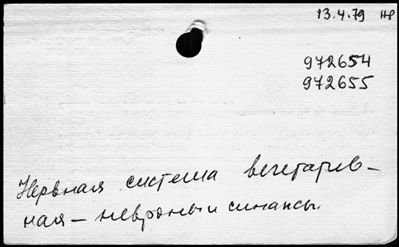 13.4.79 НР
972654
972655
Нервная система вегетатив-
ная – невроны и синапсы.